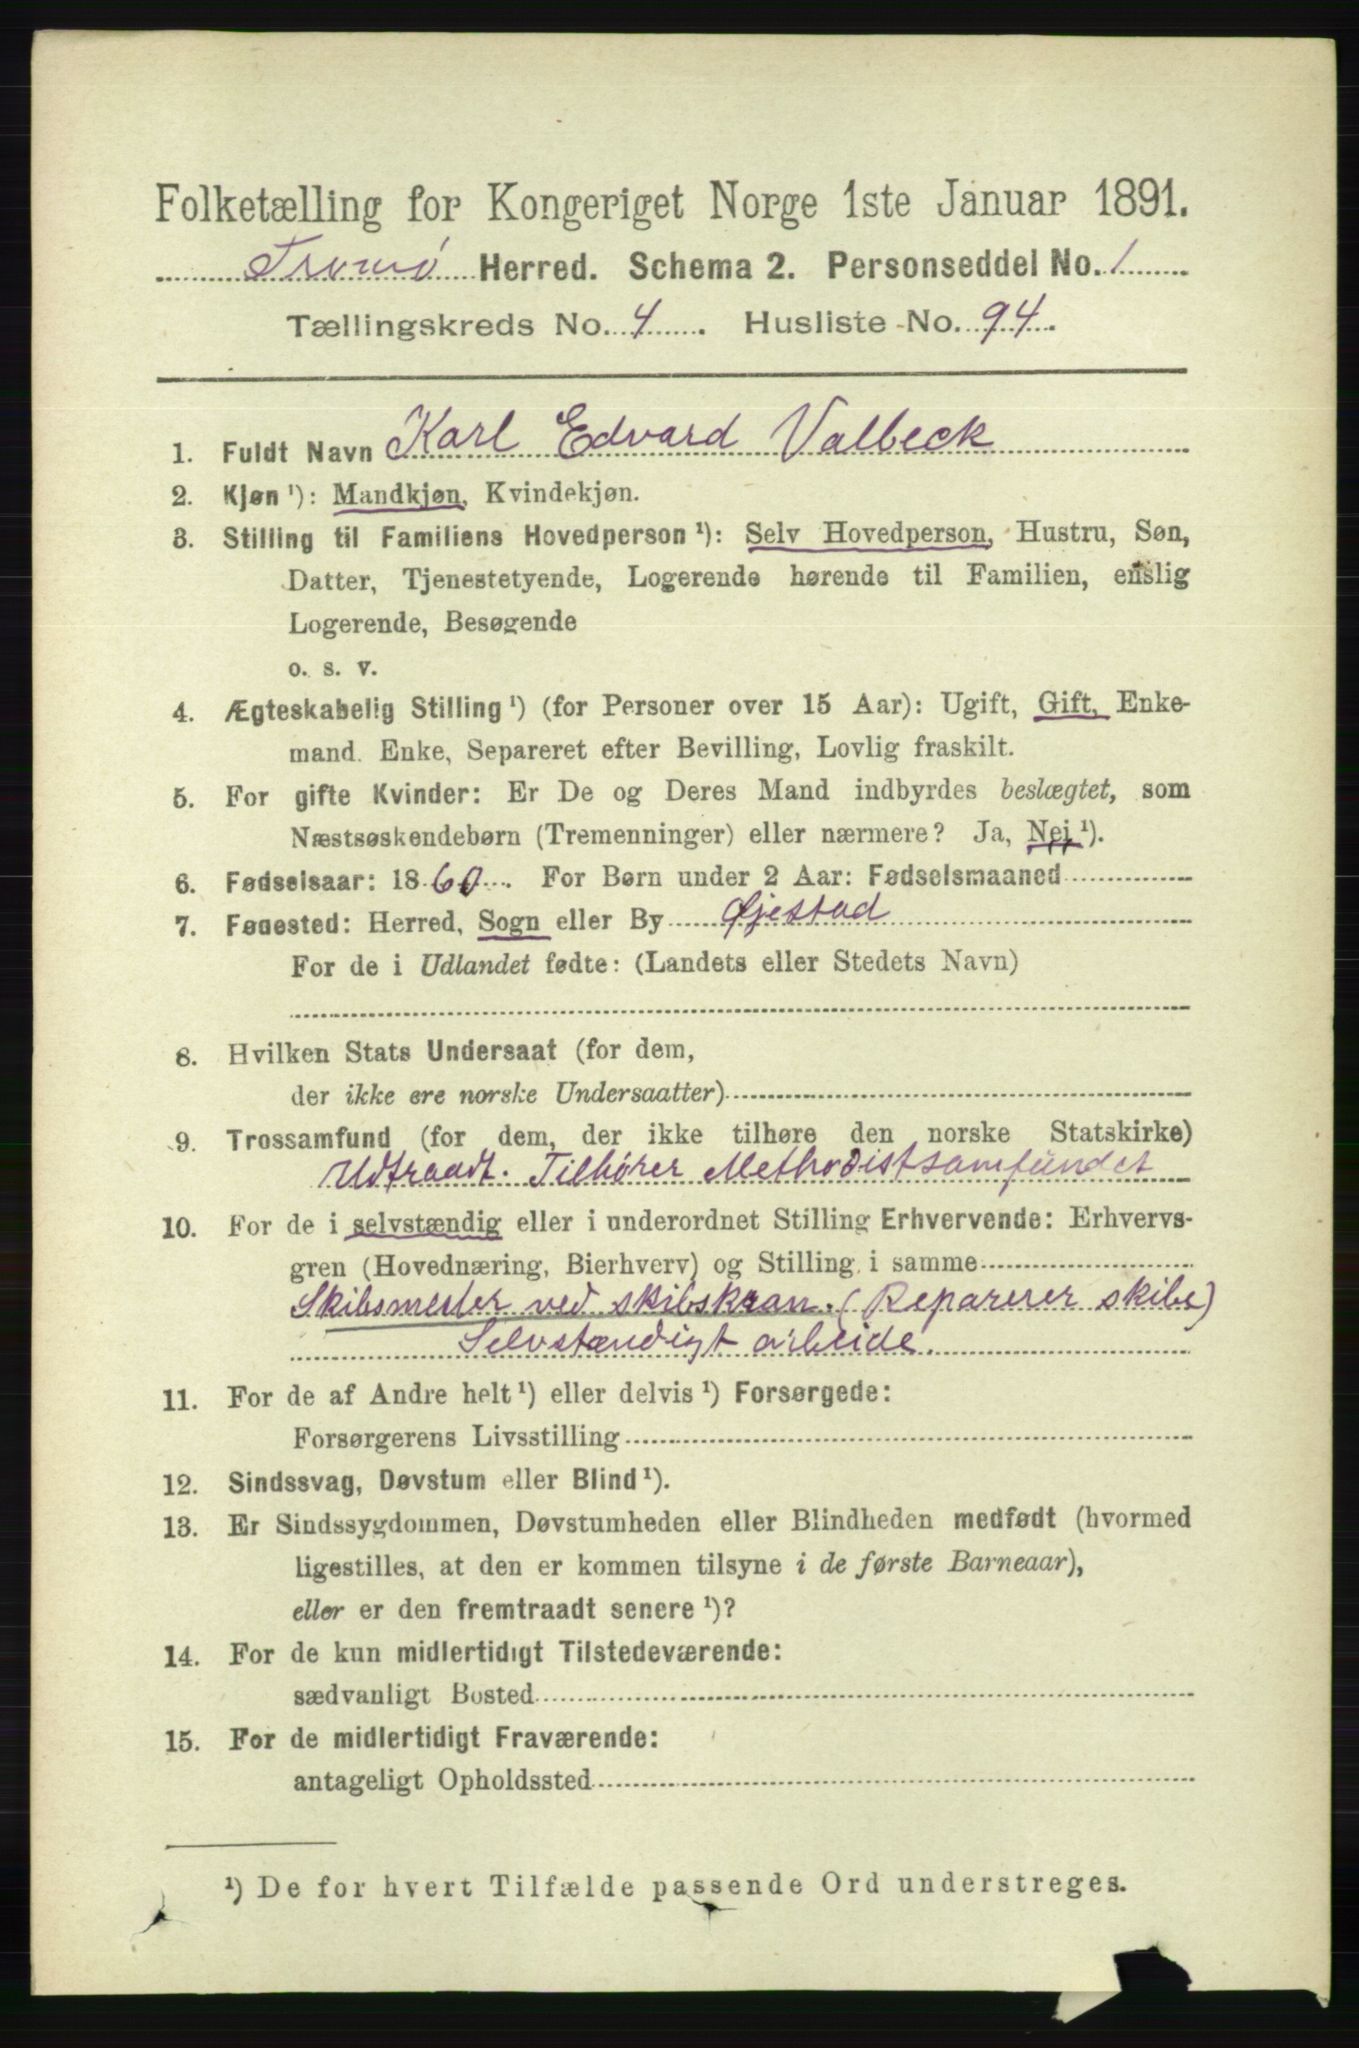 Folketælling for Kongeriget Norge 1ste Januar 1891.
Tromø Herred. Schema 2. Personseddel No. 1
Tællingskreds No. 4. Husliste No. 94.
1. Fuldt Navn Karl Edvard Valbeck
2. Kjøn ¹): Mandkjøn, Kvindekjøn.
3. Stilling til Familiens Hovedperson ¹): Selv Hovedperson, Hustru, Søn,
Datter, Tjenestetyende, Logerende hørende til Familien, enslig
Logerende, Besøgende
o. s. v.
4. Ægteskabelig Stilling ¹) (for Personer over 15 Aar): Ugift, Gift, Enke-
mand. Enke, Separeret efter Bevilling, Lovlig fraskilt.
5. For gifte Kvinder: Er De og Deres Mand indbyrdes beslægtet, som
Næstsøskendebørn (Tremenninger) eller nærmere? Ja, Nej ¹).
6. Fødselsaar: 1860. For Børn under 2 Aar: Fødselsmaaned
7. Fødested: Herred, Sogn eller By Øjestad
For de i Udlandet fødte: (Landets eller Stedets Navn)
8. Hvilken Stats Undersaat (for dem,
der ikke ere norske Undersaatter)
9. Trossamfund (for dem, der ikke tilhøre den norske Statskirke)
Udtraadt. Tilhører Methodistsamfundet
10. For de i selvstændig eller i underordnet Stilling Erhvervende: Erhvervs-
gren (Hovednæring, Bierhverv) og Stilling i samme
Skibsmester ved skibskran. (Reparerer skibe)
Selvstændigt arbeide.
11. For de af Andre helt ¹) eller delvis ¹) Forsørgede:
Forsørgerens Livsstilling
12. Sindssvag, Døvstum eller Blind ¹).
13. Er Sindssygdommen, Døvstumheden eller Blindheden medfødt (hvormed
ligestilles, at den er kommen tilsyne i de første Barneaar),
eller er den fremtraadt senere ¹)?
14. For de kun midlertidigt Tilstedeværende:
sædvanligt Bosted
15. For de midlertidigt Fraværende:
antageligt Opholdssted
¹) De for hvert Tilfælde passende Ord understreges.